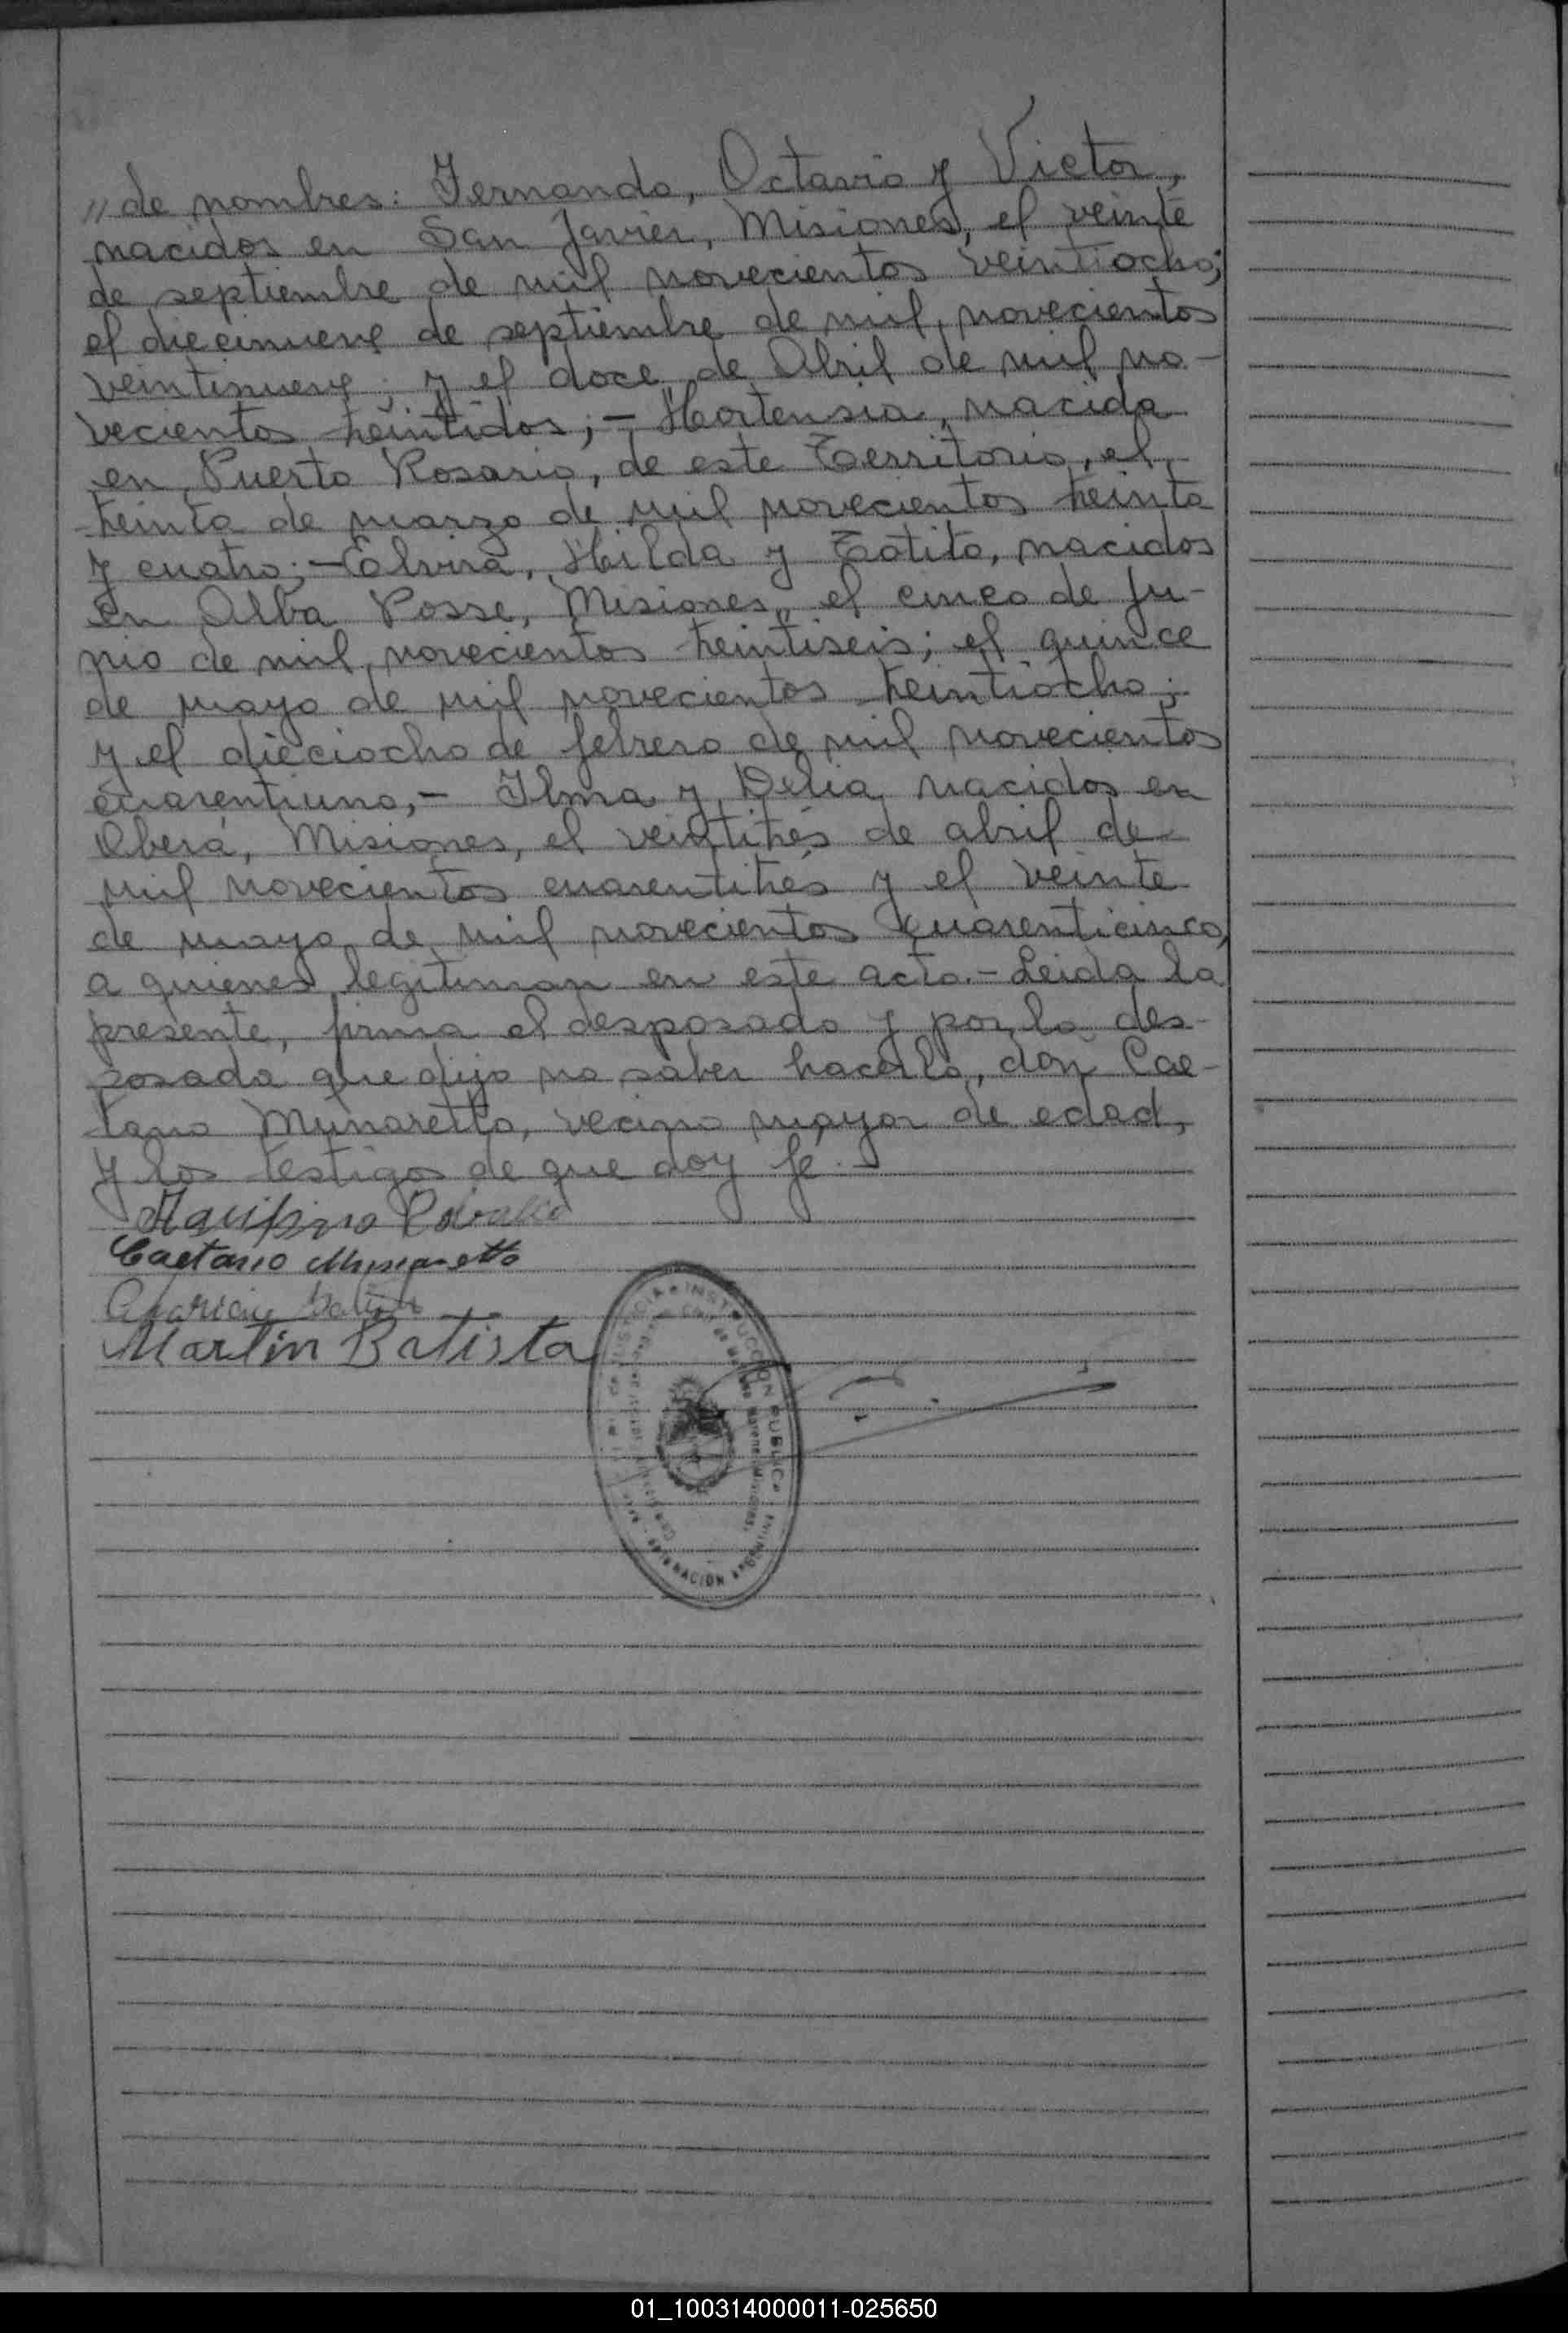 // de nombres: Fernando, Octavio y Victor,
nacidos en San Javier, Misiones, el veinte
de septiembre de mil novecientos veintiocho;
el diecinueve de septiembre de mil novecientos
veintinueve; y el doce de Abril de mil no-
vecientos treintidos; - Hortensia, nacida
en Puerto Rosario, de este Territorio, el
treinta de marzo de mil novecientos treinta
y cuatro; - Elvira, Hilda y Totito, nacidos
en Alba Posse, Misiones, el cinco de Ju-
nio de mil novecientos treintiseis; el quince
de mayo de mil novecientos treintiocho;
y el dieciocho de febrero de mil novecientos
cuarentiuno, - Ilma y Delia nacidos en
Oberá, Misiones, el veintitrés de abril de
mil novecientos cuarentitrés y el veinte
de mayo de mil novecientos cuarenticinco,
a quienes legitiman en este acto. - Leida la
presente, firma el desposado y por la des-
posada que dijo no saber hacerlo, don Cae-
tano Munaretto, vecino mayor de edad,
y los testigos de que doy fé. -
Caetano Munaretto
Martin Batista
INSTRUCCION PUBLICA
01_100314000011-025650